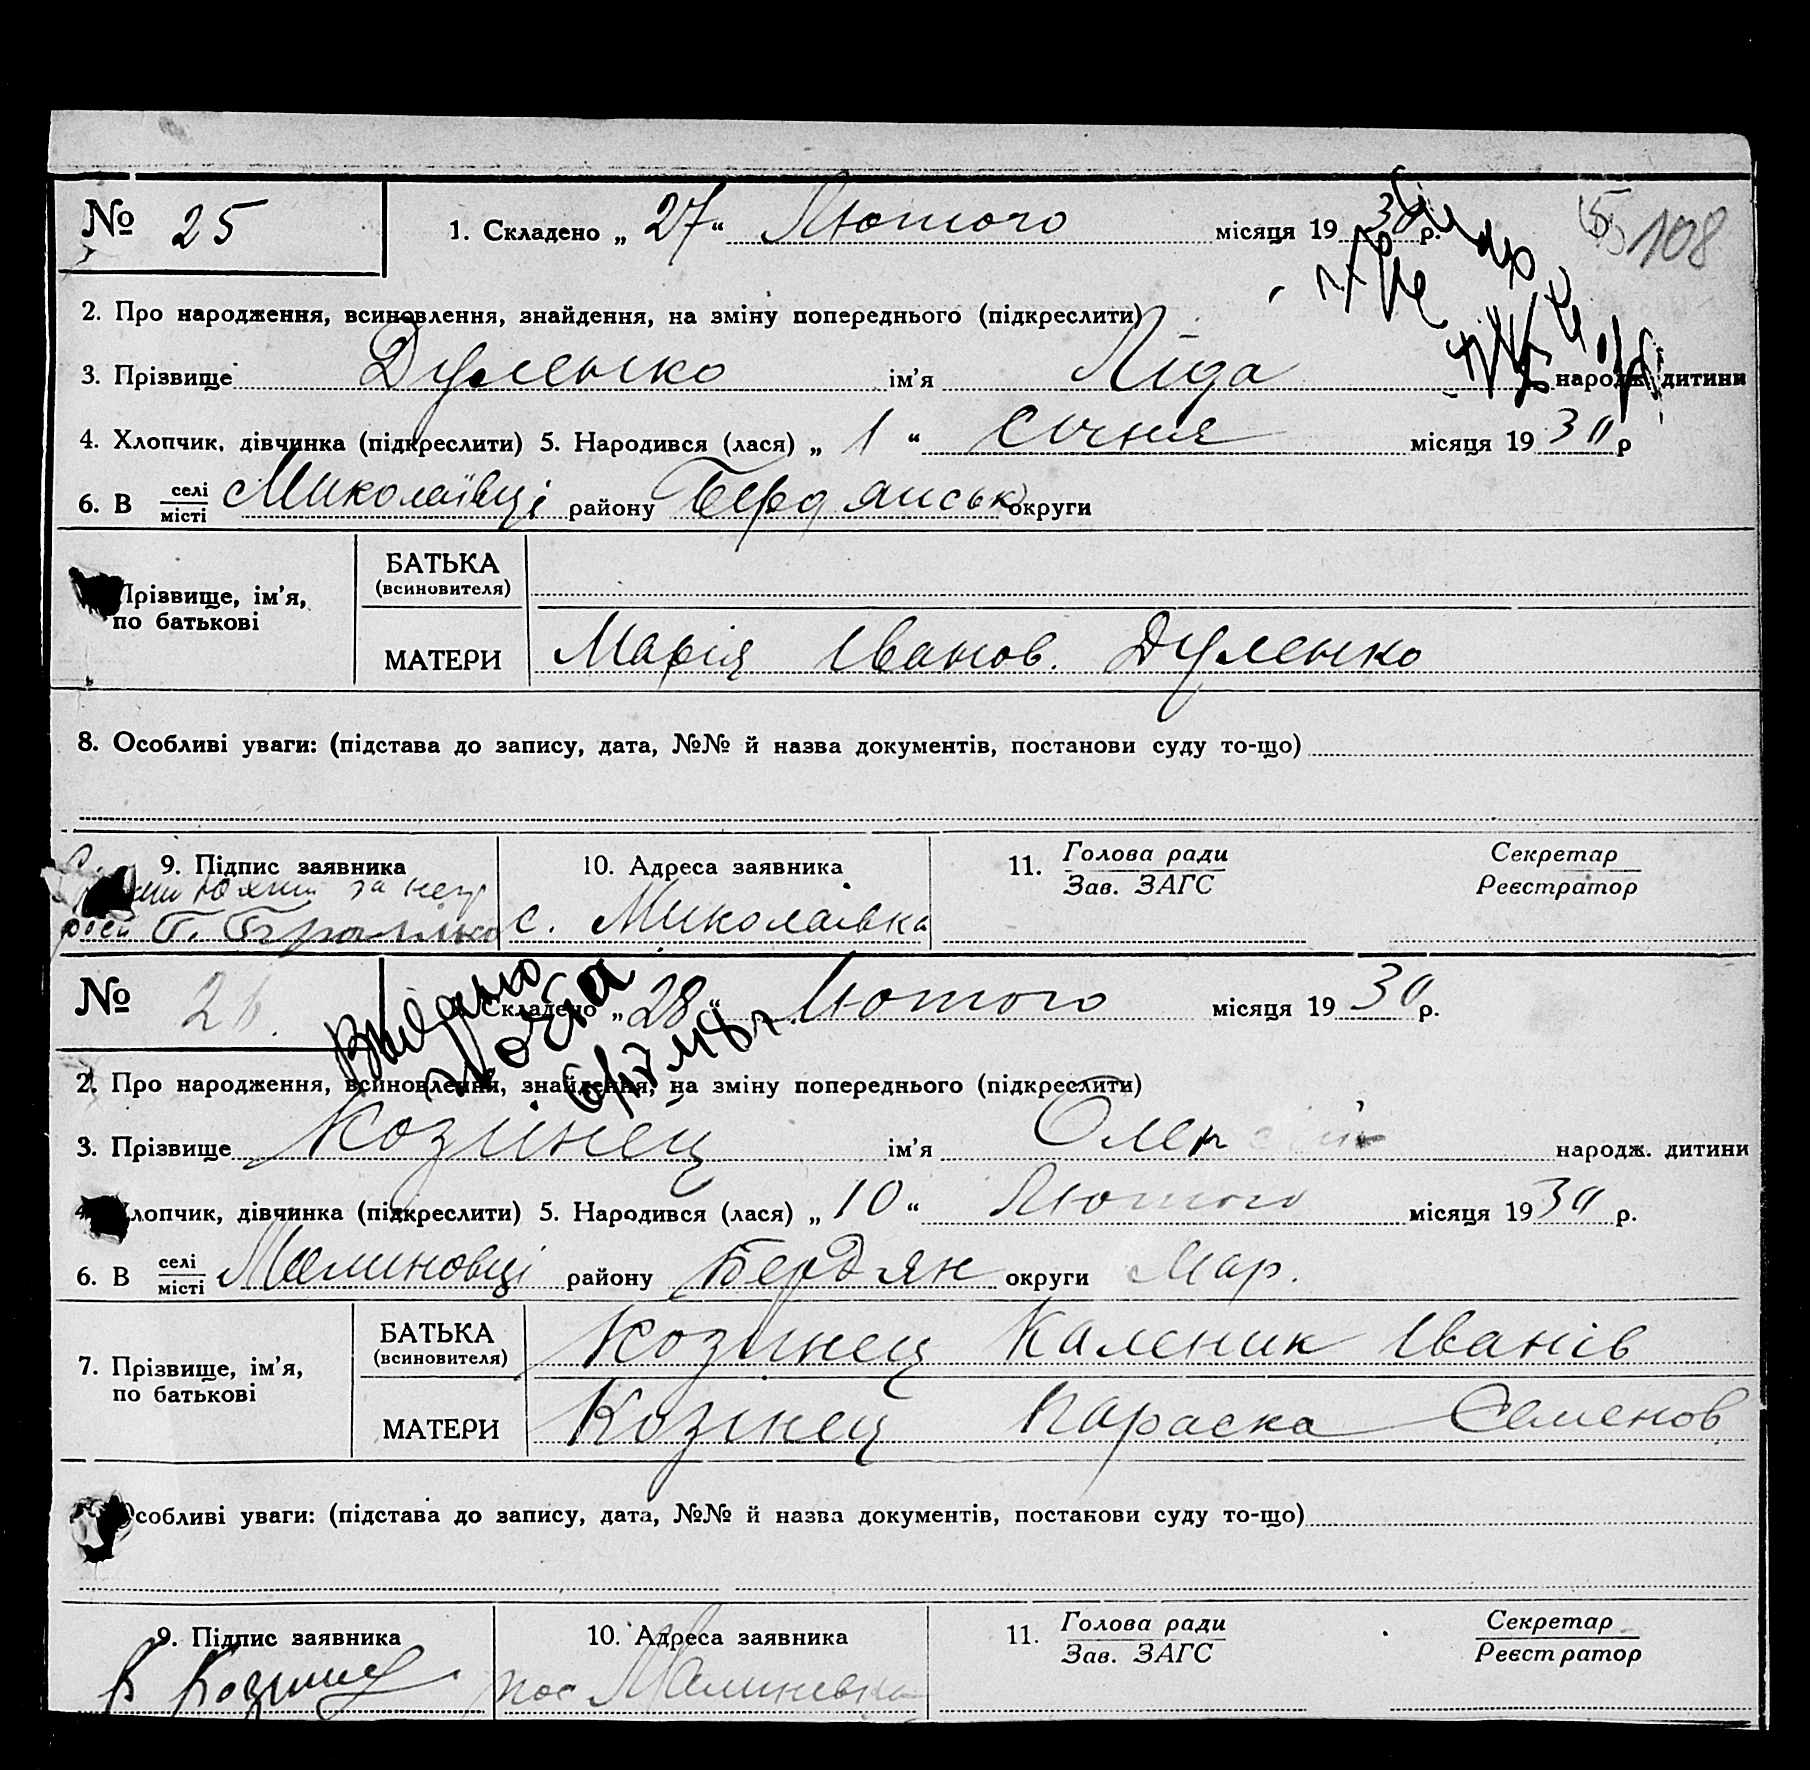 № 25
1. Складено „ 27 “ Лютого місяця 1930 р.
108
2. Про народження, всиновлення, знайдення, на зміну попереднього (підкреслити)
3. Прізвище Дуленко ім’я Ліда народж. дитини
4. Хлопчик, дівчинка (підкреслити) 5. Народився (лася) „ 1 “ січня місяця 1930 р
6. В селі місті Миколаївці району Бердянськ округи
Прізвище, ім’я, по батькові
БАТЬКА (всиновителя)
МАТЕРИ Марія Іванов. Дуленко
8. Особливі уваги: (підстава до запису, дата, №№ й назва документів, постанови суду то-що)
9. Підпис заявника
10. Адреса заявника
11. Голова ради Зав. ЗАГС
Секретар Реєстратор
за неї
с. Миколаївка
№ 26.
Складено „ 28 “ Лютого місяця 1930 р.
Видано
2. Про народження, всиновлення, знайдення, на зміну попереднього (підкреслити)
3. Прізвище Козинец ім’я Олексій народж. дитини
Хлопчик, дівчинка (підкреслити) 5. Народився (лася) „ 10 “ Лютого місяця 1930 р.
6. В селі місті Малиновці району Бердян округи Мар.
7. Прізвище, ім’я, по батькові
БАТЬКА (всиновителя) Козинец Каленик Іванів
МАТЕРИ Козинец Параска Семенов
Особливі уваги: (підстава до запису, дата, №№ й назва документів, постанови суду то-що)
9. Підпис заявника
10. Адреса заявника
11. Голова ради Зав. ЗАГС
Секретар Реєстратор
К Козинец
пос Малинівка